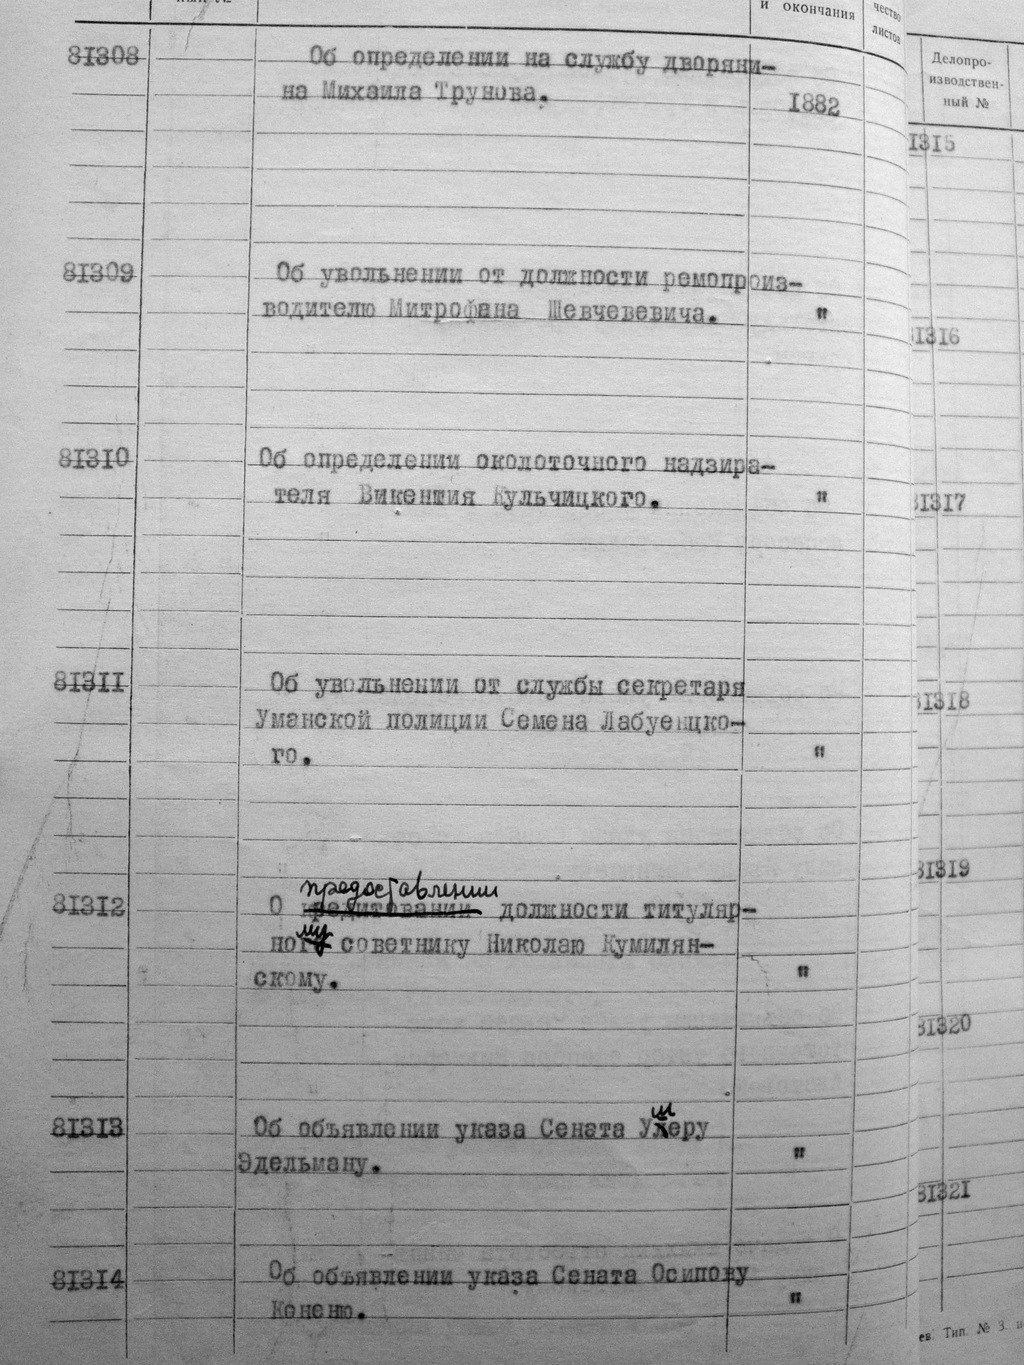 и окончания
чество
листов
81308 Об определении на службу дворяни-
на Михаила Трунова. 1882
81309 Об увольнении от должности ремопроиз-
водителю Митрофана Шевчевевича. "
81310 Об определении околоточного надзира-
теля Викентия Кульчицкого. "
81311 Об увольнении от службы секретаря
Уманской полиции Семена Лабуенцко-
го. "
предоставлении
81312 О кредитовании должности титуляр-
ному советнику Николаю Кумилян-
скому. "
81313 Об объявлении указа Сената Ушеру
Эдельману. "
81314 Об объявлении указа Сената Осипову
Коненю. "
Делопро-
изводствен-
ный №
1315
81316
81317
81318
81319
81320
81321
Тип. № 3